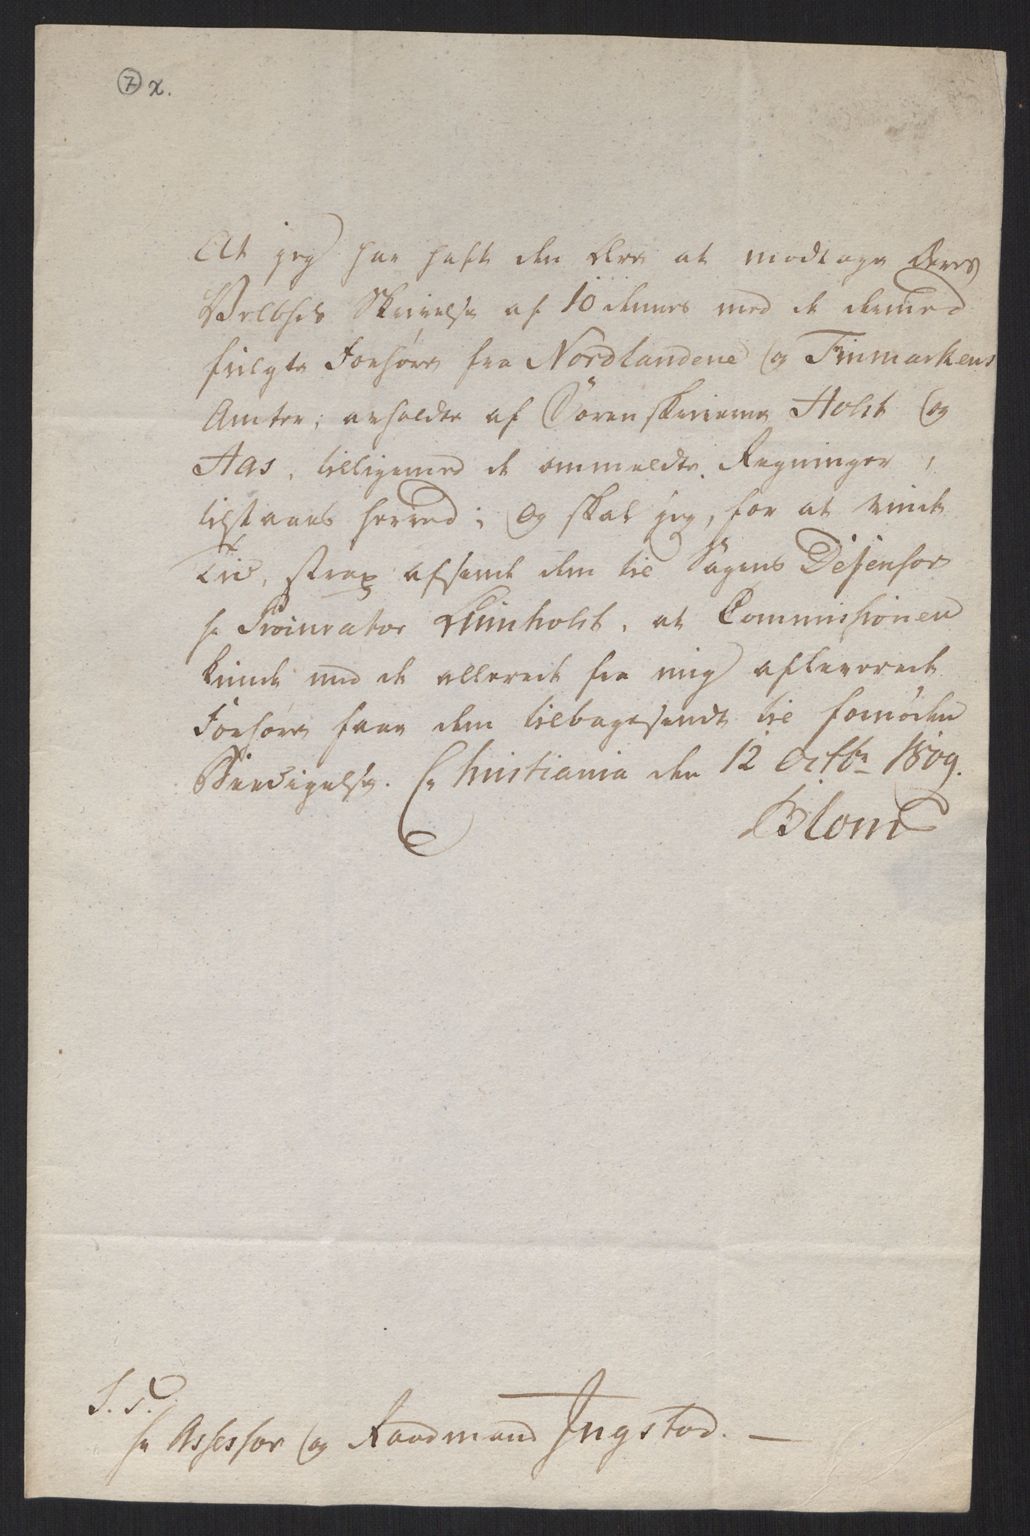 7 x.
At jeg har haft den Ære at modtage Deres
Velbhds Skrivelse af 10 dennes med de dermed
fulgte Forhører fra Nordlandene og Finmarkens
Amter, anholdte af Sörenskriverne Holst og
Aas, tilligemed de ommeldte Regninger,
tilstaaes herved; og skal jeg, for at vinde
Tid, strax afsende dem til Sagens Defensor
Hr Procurator Lumholst, at Commissionen
kunde med de allerede fra mig afleverede
Forhører faae dem tilbagesendt til fornøden
Christiania den 12 Octbr 1809.
Blom
S. T.
Hr Assessor og Raadmand Ingstad. —